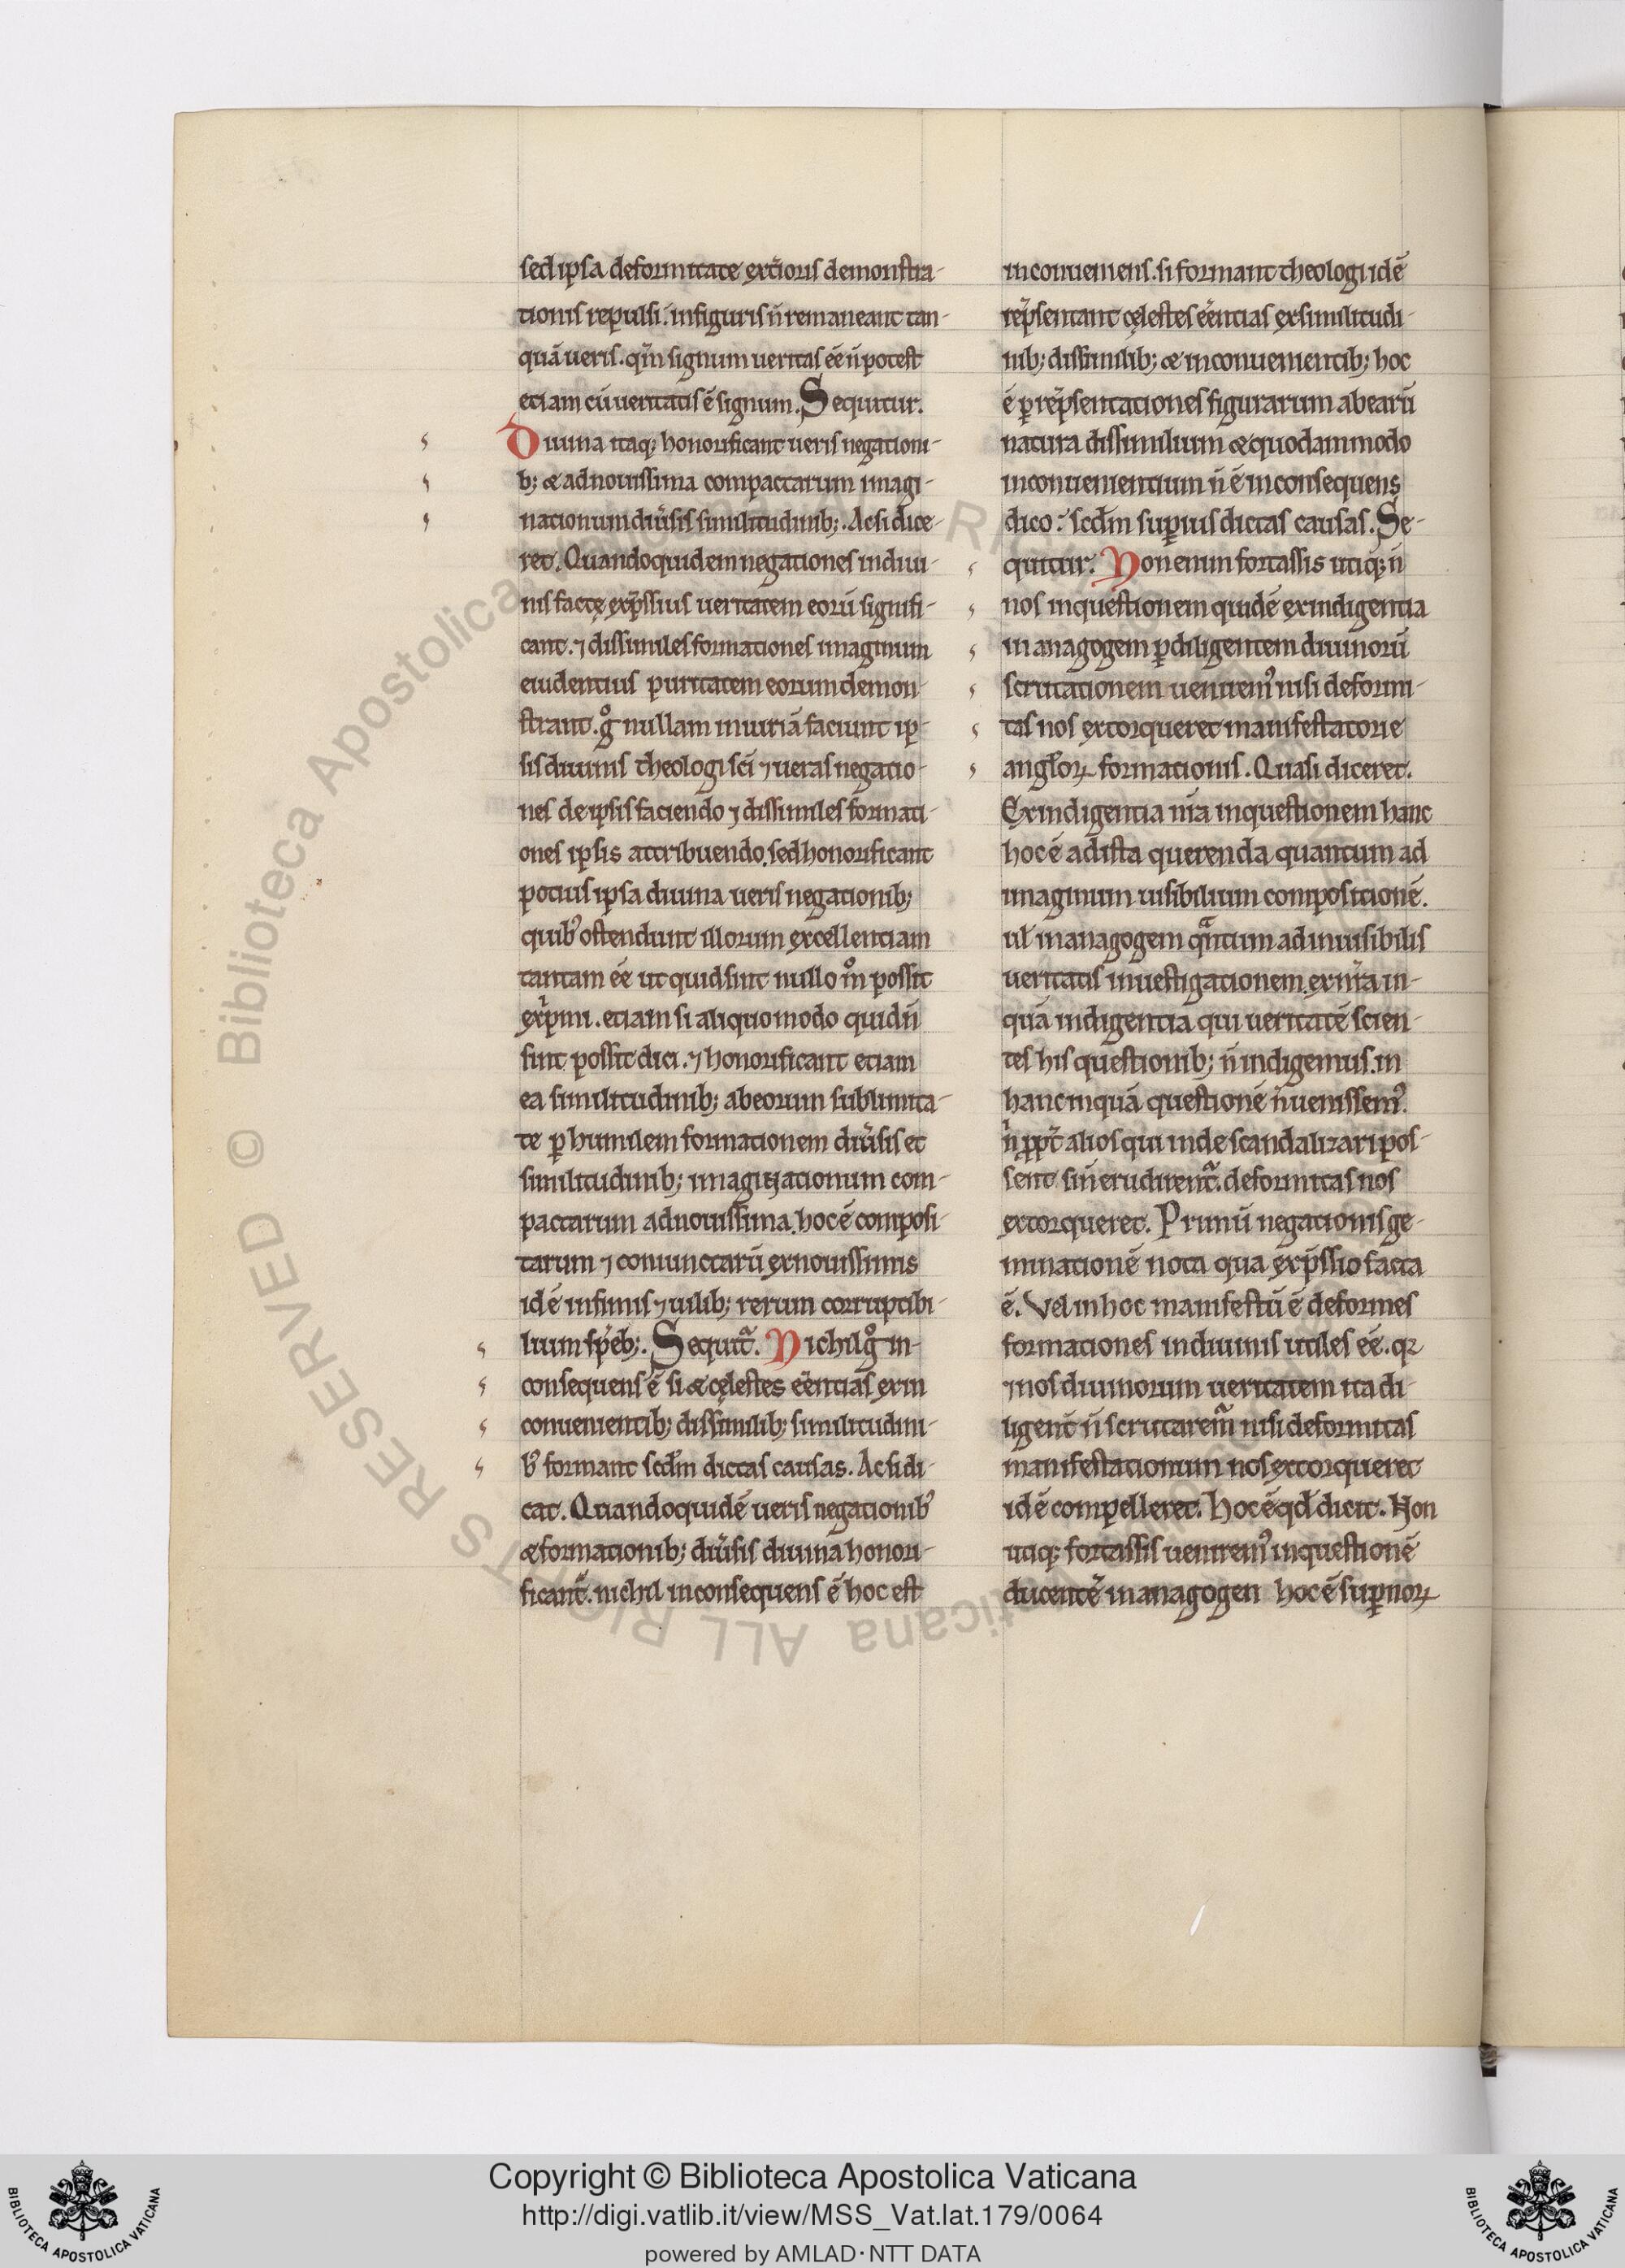 sed ipsa deformitate ext̄ioris demonstra-
tionis repulsi. in figuris n̄ remaneant tan-
quā ueris. qm̄ signum ueritas ēē n̄ potest
etiam cū ueritatis ē signum. Sequitur.
Diuina itaq; honorificant ueris negationi-
b; & ad nouissima compactarum imagi-
nationum diu̾sis similitudinib;. Ac si dice-
ret. Quandoquidem negationes in diui-
nis factę exp̄ssius ueritatem eorū signifi-
cant. ⁊ dissimiles formationes imaginum
euidentius puritatem eorum demon-
strant. gͦ nullam iniuriā faciunt ip-
sis diuinis theologi sc̄i ⁊ ueras negatio-
nes de ipsis faciendo ⁊ dissimiles formati-
ones ipsis attribuendo. sed honorificant
potius ipsa diuina ueris negationib;
quib᾽ ostendunt illorum excellentiam
tantam ēē ut quid sint nullo mͦ possit
exp̍mi. etiam si aliquo modo quid n̄
sint possit dici. ⁊ honorificant etiam
ea similitudinib; ab eorum sublimita-
te ꝑ humilem formationem diu̾sis et
similitudinib; imaginationum com-
pactarum ad nouissima. hoc ē composi-
tarum ⁊ coniunctarū ex nouissimis
id ē infimis ⁊ uilib; rerum corruptibi-
lium sp̄eb;. Sequit᷑. Nichil gͦ in-
consequens ē si & cęlestes ēēntias ex in
conuenientib; dissimilib; similitudini-
b᾽ formant scd̄m dictas causas. Ac si di-
cat. Quandoquidē ueris negationib᾽
& formationib; diu̾sis diuina honori-
ficant᷑. nichil inconsequens ē hoc est
inconueniens. si formant theologi id ē
rep̄sentant cęlestes ēēntias ex similitudi-
nib; dissimilib; & inconuenientib; hoc
ē ꝑ rep̄sentationes figurarum ab earū
natura dissimilium & quodammodo
inconuenientium n̄ ē inconsequens
dico. scd̄m superius dictas causas. Se-
quitur. Non enim fortassis utiq; n̄
nos in questionem quidē ex indigentia
in anagogem ꝑ diligentem diuinorū
scrutationem uenirem᾽ nisi deformi-
tas nos extorqueret manifestatorie
angl̄oꝝ formationis. Quasi diceret.
Ex indigentia nr̄a in questionem hanc
hoc ē ad ista querenda quantum ad
imaginum uisibilium compositionē.
ul̄ in anagogem qͣntum ad inuisibilis
ueritatis inuestigationem. ex nr̄a in-
quā indigentia qui ueritatē scien-
tes his questionib; n̄ indigemus. in
hanc inquā questionē n̄ uenissem᾽.
n̍ ꝓpt̄ alios qui inde scandalizari pos-
sent si n̄ erudirent᷑. deformitas nos
extorqueret. Primū negationis ge-
minationē nota qua exp̄ssio facta
ē. Vel in hoc manifestū ē deformes
formationes in diuinis utiles ēē. qꝛ
⁊ nos diuinorum ueritatem ita di-
ligent̄ n̄ scrutarem᷑ nisi deformitas
manifestationum nos extorqueret
id ē compelleret. Hoc ē qd̄ dicit. Non
utiq; fortassis uenirem᾽ in questionē
ducentē in anagogen hoc ē suꝑnoꝝ
© Biblioteca Apostolica Vaticana ALL RIGHTS RESERVED
Copyright © Biblioteca Apostolica Vaticana
http://digi.vatlib.it/view/MSS_Vat.lat.179/0064
powered by AMLAD·NTT DATA
BIBLIOTECA APOSTOLICA VATICANA
BIBLIOTECA APOSTOLICA VATICANA